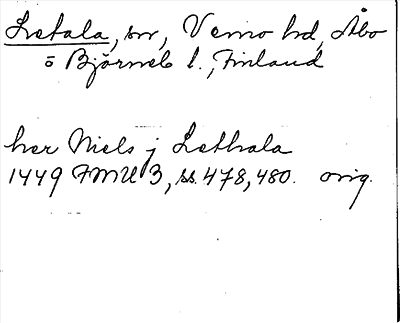 Letala, sn, Vemo hd, Åbo
o Björneb l., Finland
her Niels j Lethala
1449 FMU 3, ss. 478, 480. orig.